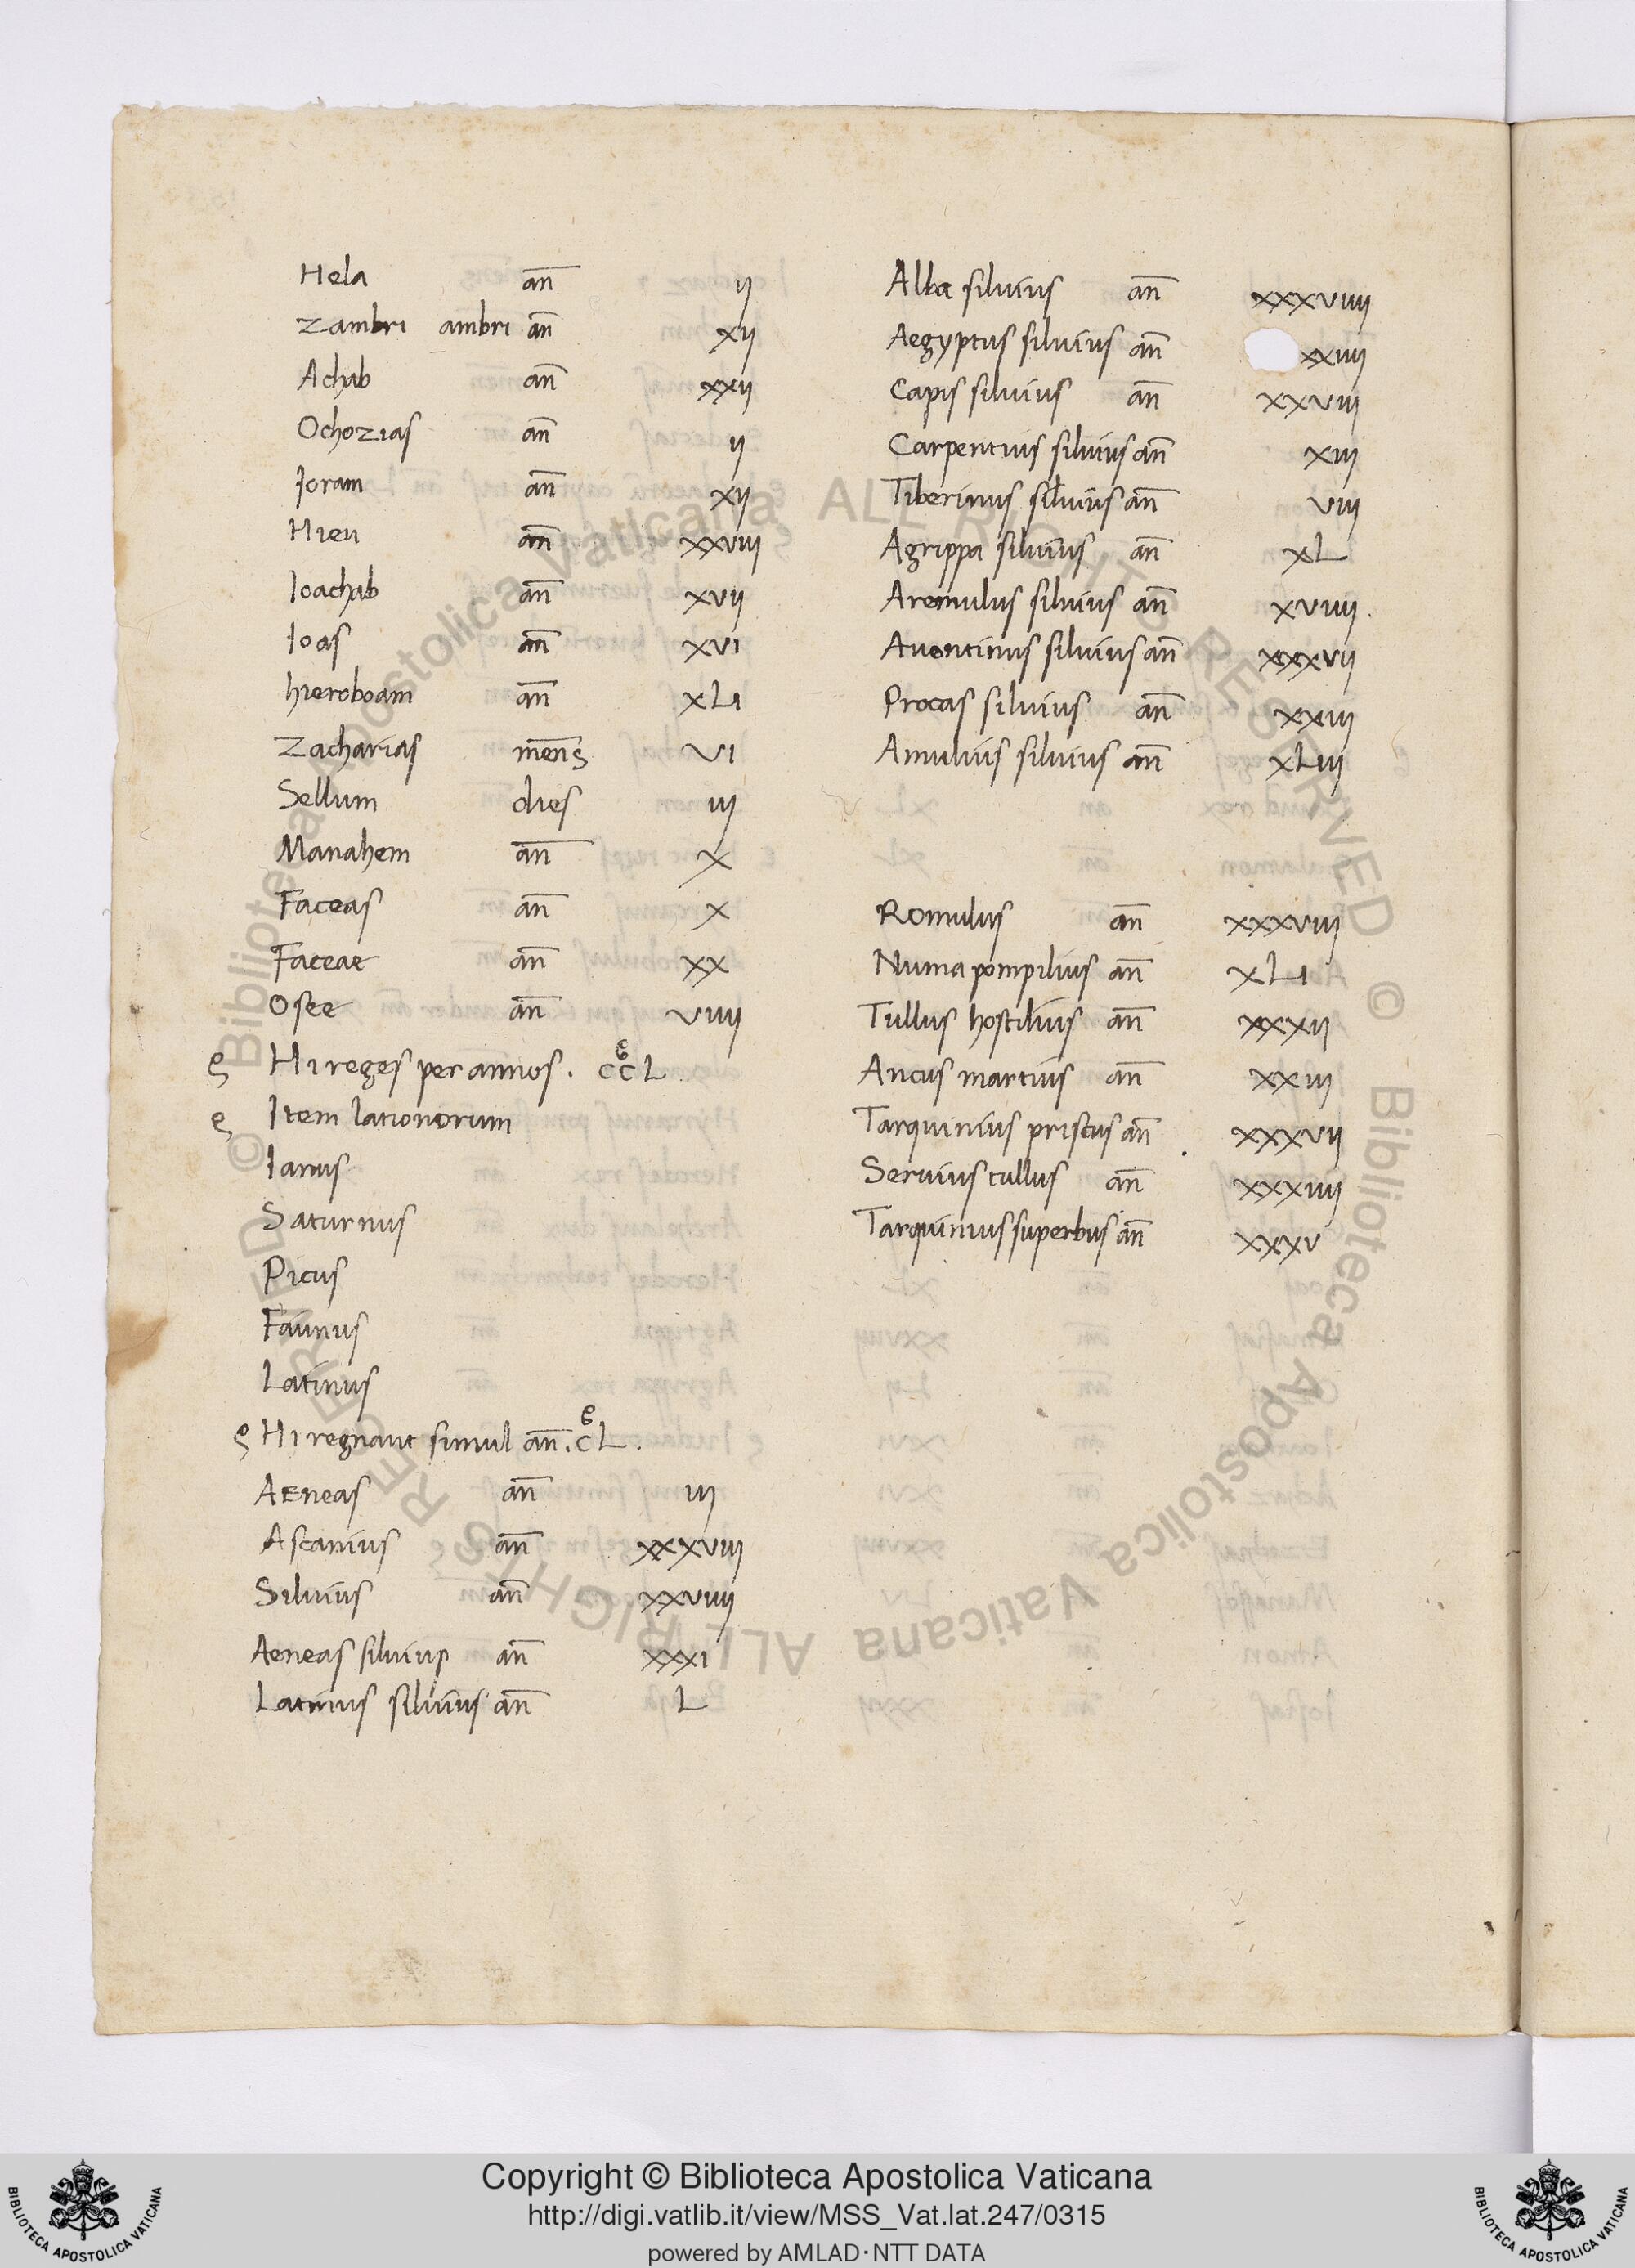 Hela an̅ ij
Zambri ambri an̅ xij
Achab an̅ xxij
Ochozias an̅ ij
Joram an̅ xij
Hieu an̅ xxviij
Ioachab an̅ xvij
Ioas an̅ xvi
hieroboam an̅ xLi
Zacharias men̅s vi
Sellum dies iij
Manahem an̅ x
Faceas an̅ x
Faceae an̅ xx
Osee an̅ viiij
Hi reges per annos. ccL
Item lationorum
Ianus
Saturnus
Picus
Faunus
Latinus
Hi regnant simul an̅. cL.
Aeneas an̅ iij
Ascanius an̅ xxxviij
Siluius an̅ xxviiij
Aeneas siluius an̅ xxxi
Latinus siluius an̅ L
Alba siluius an̅ xxxviiij
Aegyptus siluius an̅ xxiiij
Capis siluius an̅ xxviij
Carpentius siluius an̅ xiij
Tiberinus siluius an̅ viij
Agrippa siluius an̅ xL
Aremulus siluius an̅ xviiij.
Auentinus siluius an̅ xxxvij
Procas siluius an̅ xxiij
Amulius siluius an̅ xLiij
Romulus an̅ xxxviij
Numa pompilius an̅ xLi
Tullus hostilius an̅ xxxij
Ancus martius an̅ xxiij
Tarquinius priscus an̅ xxxvij
Seruius tullus an̅ xxxiiij
Tarquinius superbus an̅ xxxv
© Biblioteca Apostolica Vaticana ALL RIGHTS RESERVED © Biblioteca Apostolica Vaticana ALL RIGHTS RESERVED
Copyright © Biblioteca Apostolica Vaticana
http://digi.vatlib.it/view/MSS_Vat.lat.247/0315
powered by AMLAD·NTT DATA
BIBLIOTECA APOSTOLICA VATICANA
BIBLIOTECA APOSTOLICA VATICANA